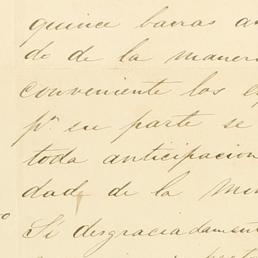 quince barras
do de la
conveniente los
pr. en parte se
toda anticipacion
dad de la
Si desgraciadament